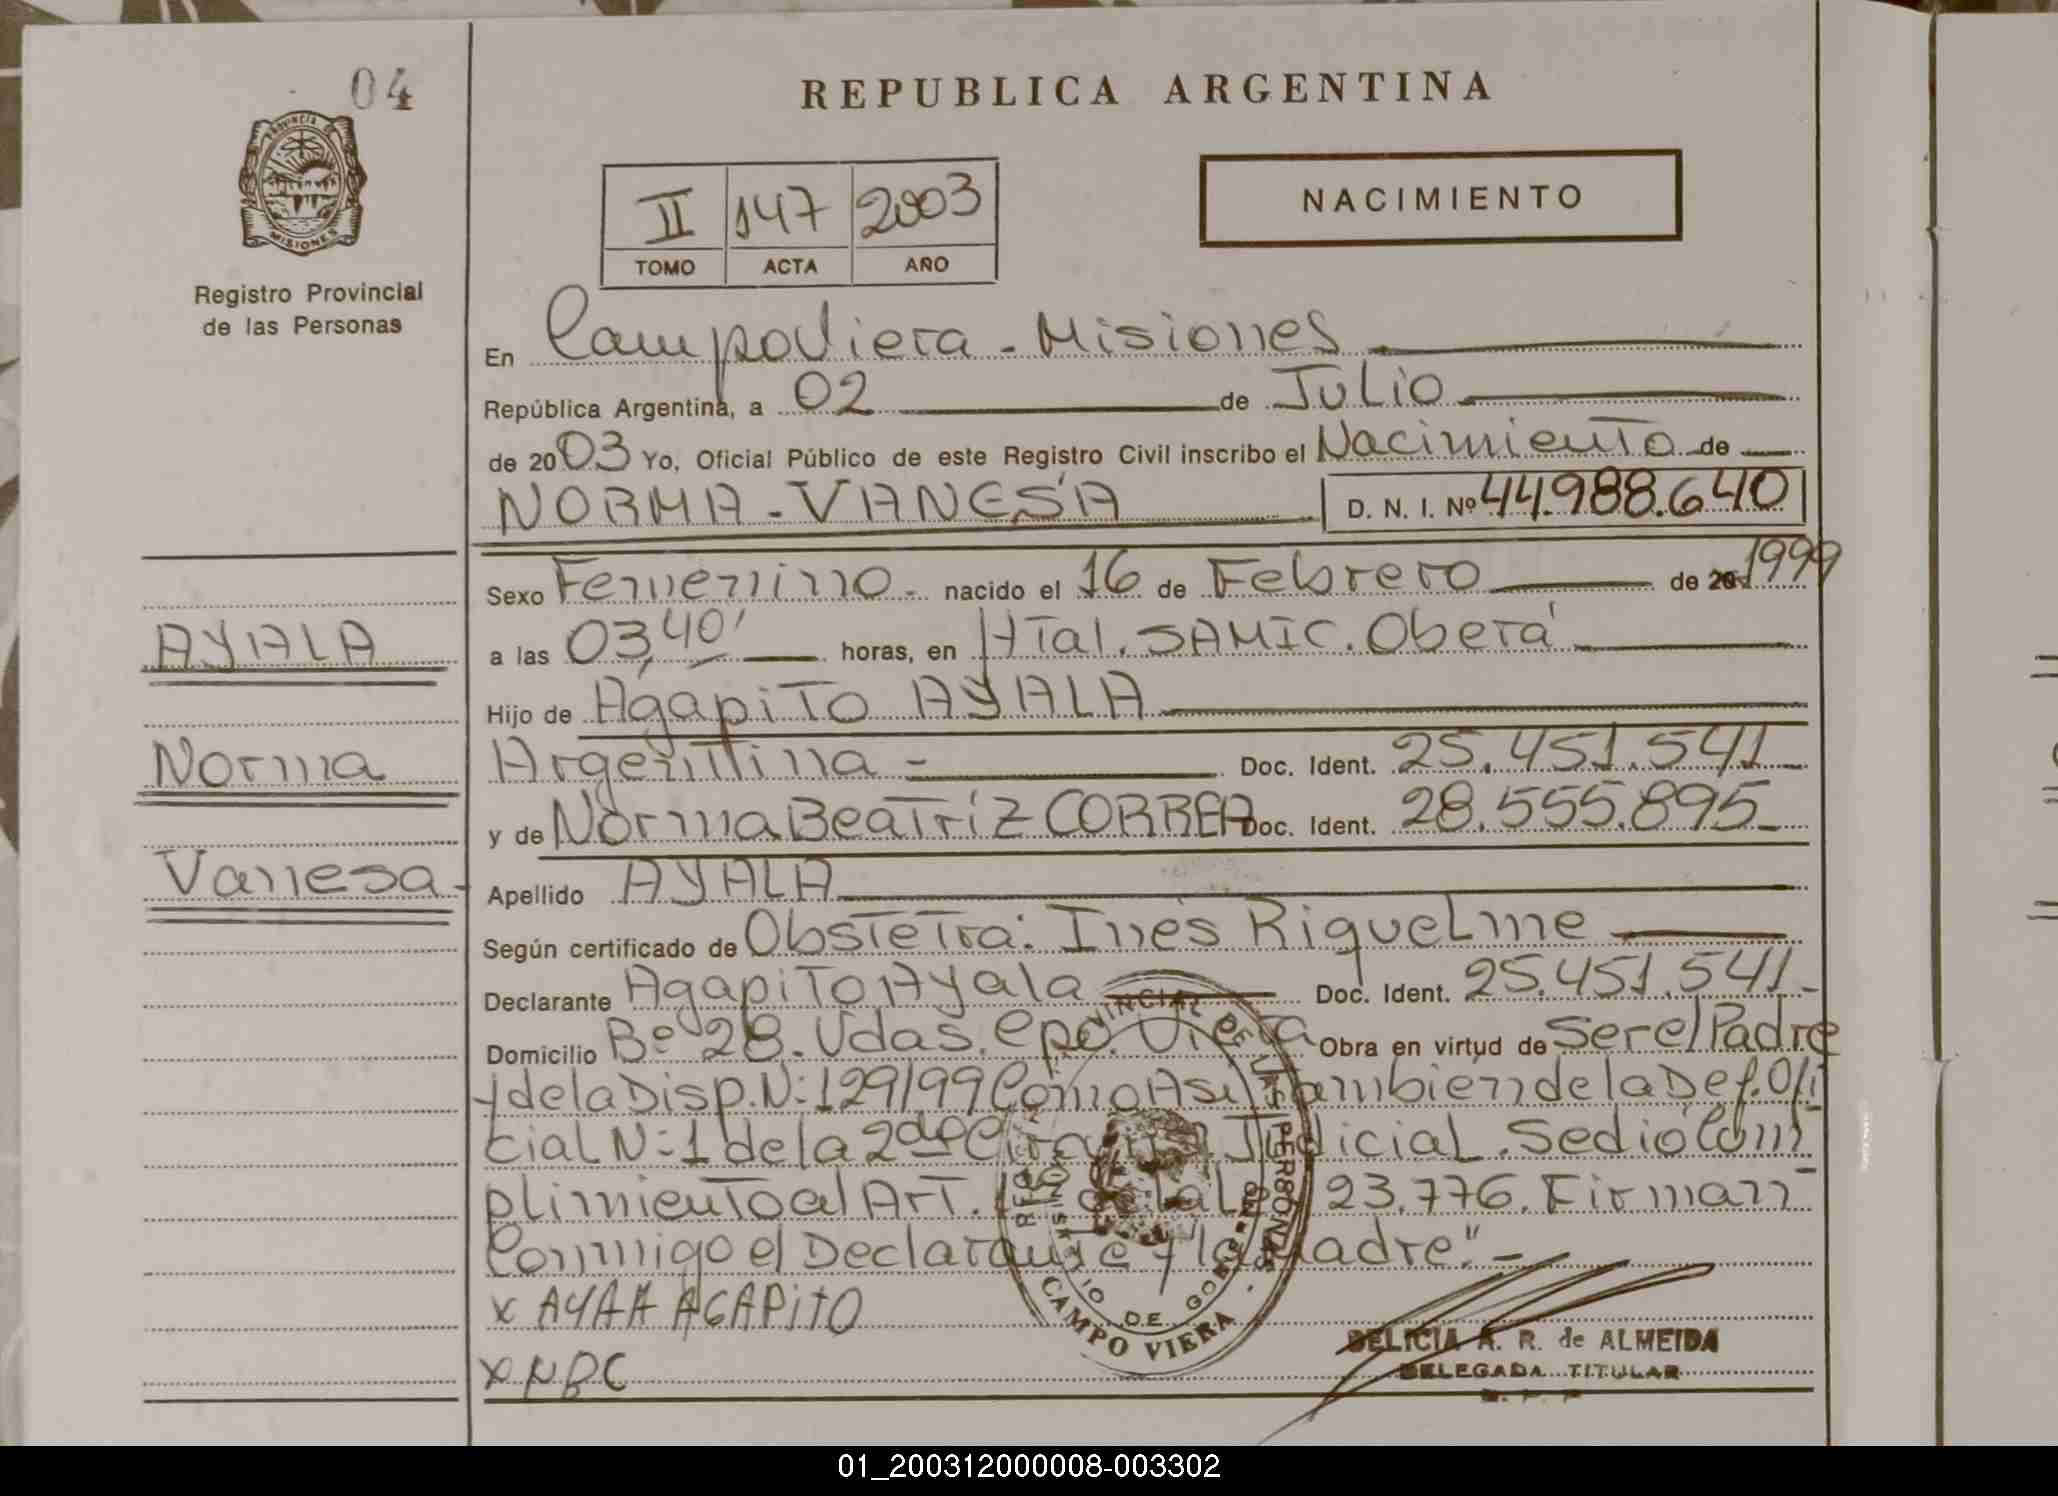 04
PROVINCIA DE
MISIONES
Registro Provincial
de las Personas
REPUBLICA ARGENTINA
II 147 2003
TOMO ACTA AÑO
NACIMIENTO
En Campo Viera - Misiones
República Argentina, a 02 de Julio
de 2003 Yo, Oficial Público de este Registro Civil inscribo el Nacimiento de
NORMA - VANESA D. N. I. Nº 44.988.640
Sexo Femenino - nacido el 16 de Febrero de 20 1999
a las 03,40' horas, en HTal. SAMIC. Oberá
Hijo de Agapito AYALA
Argentina - Doc. Ident. 25.451.541
y de Norma Beatriz CORREA Doc. Ident. 28.555.895
Apellido AYALA
Según certificado de Obstetra: Inés Riquelme
Declarante Agapito Ayala Doc. Ident. 25.451.541-
Domicilio Bº 28. Vdas. Cpo. Viera Obra en virtud de Ser el Padre
y de la Disp. N: 129/99 Como Asi Tambien de la Def. Ofi
cial N: 1 de la 2da Judicial. Se dió Cum
plimiento al Art. 23.776. Firman
Conmigo el Declarante y la Madre." -
x AYAA AGAPITO
x NBC
AYALA
Norma
Vanesa -
CAMPO VIERA
DELICIA A. R. de ALMEIDA
DELEGADA TITULAR
01_200312000008-003302